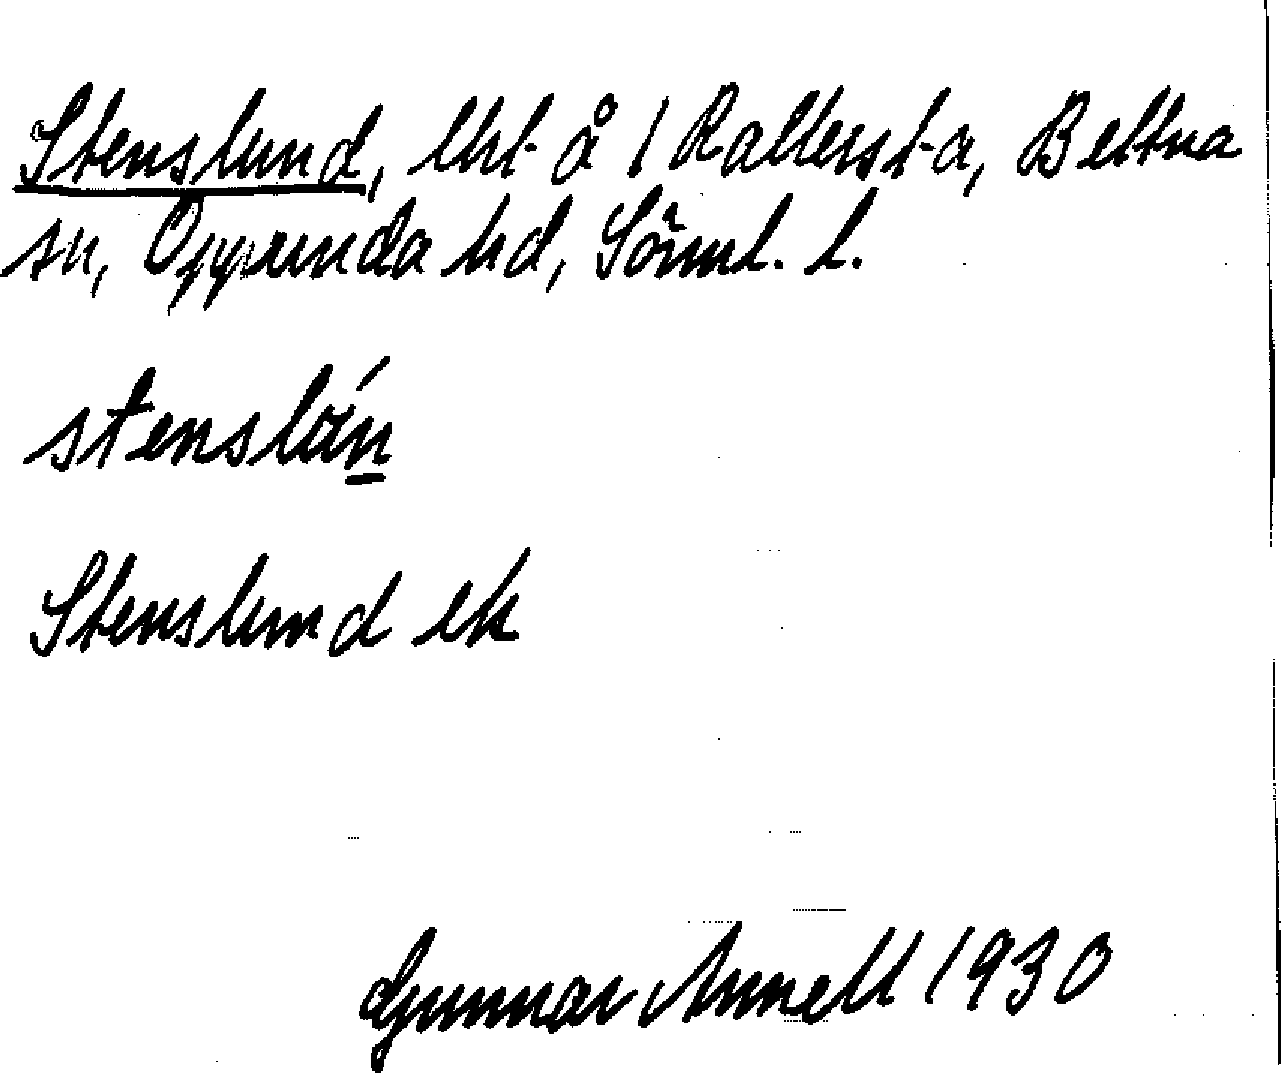 Stenslund, lht å 1 Rallersta, Bettna
sn, Oppunda hd, Sörml. l.
stenslán
Stenslund ek
Gunnar Annell 1930